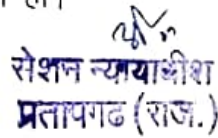 सेशन न्यायाधीश
प्रतापगढ (राज.)